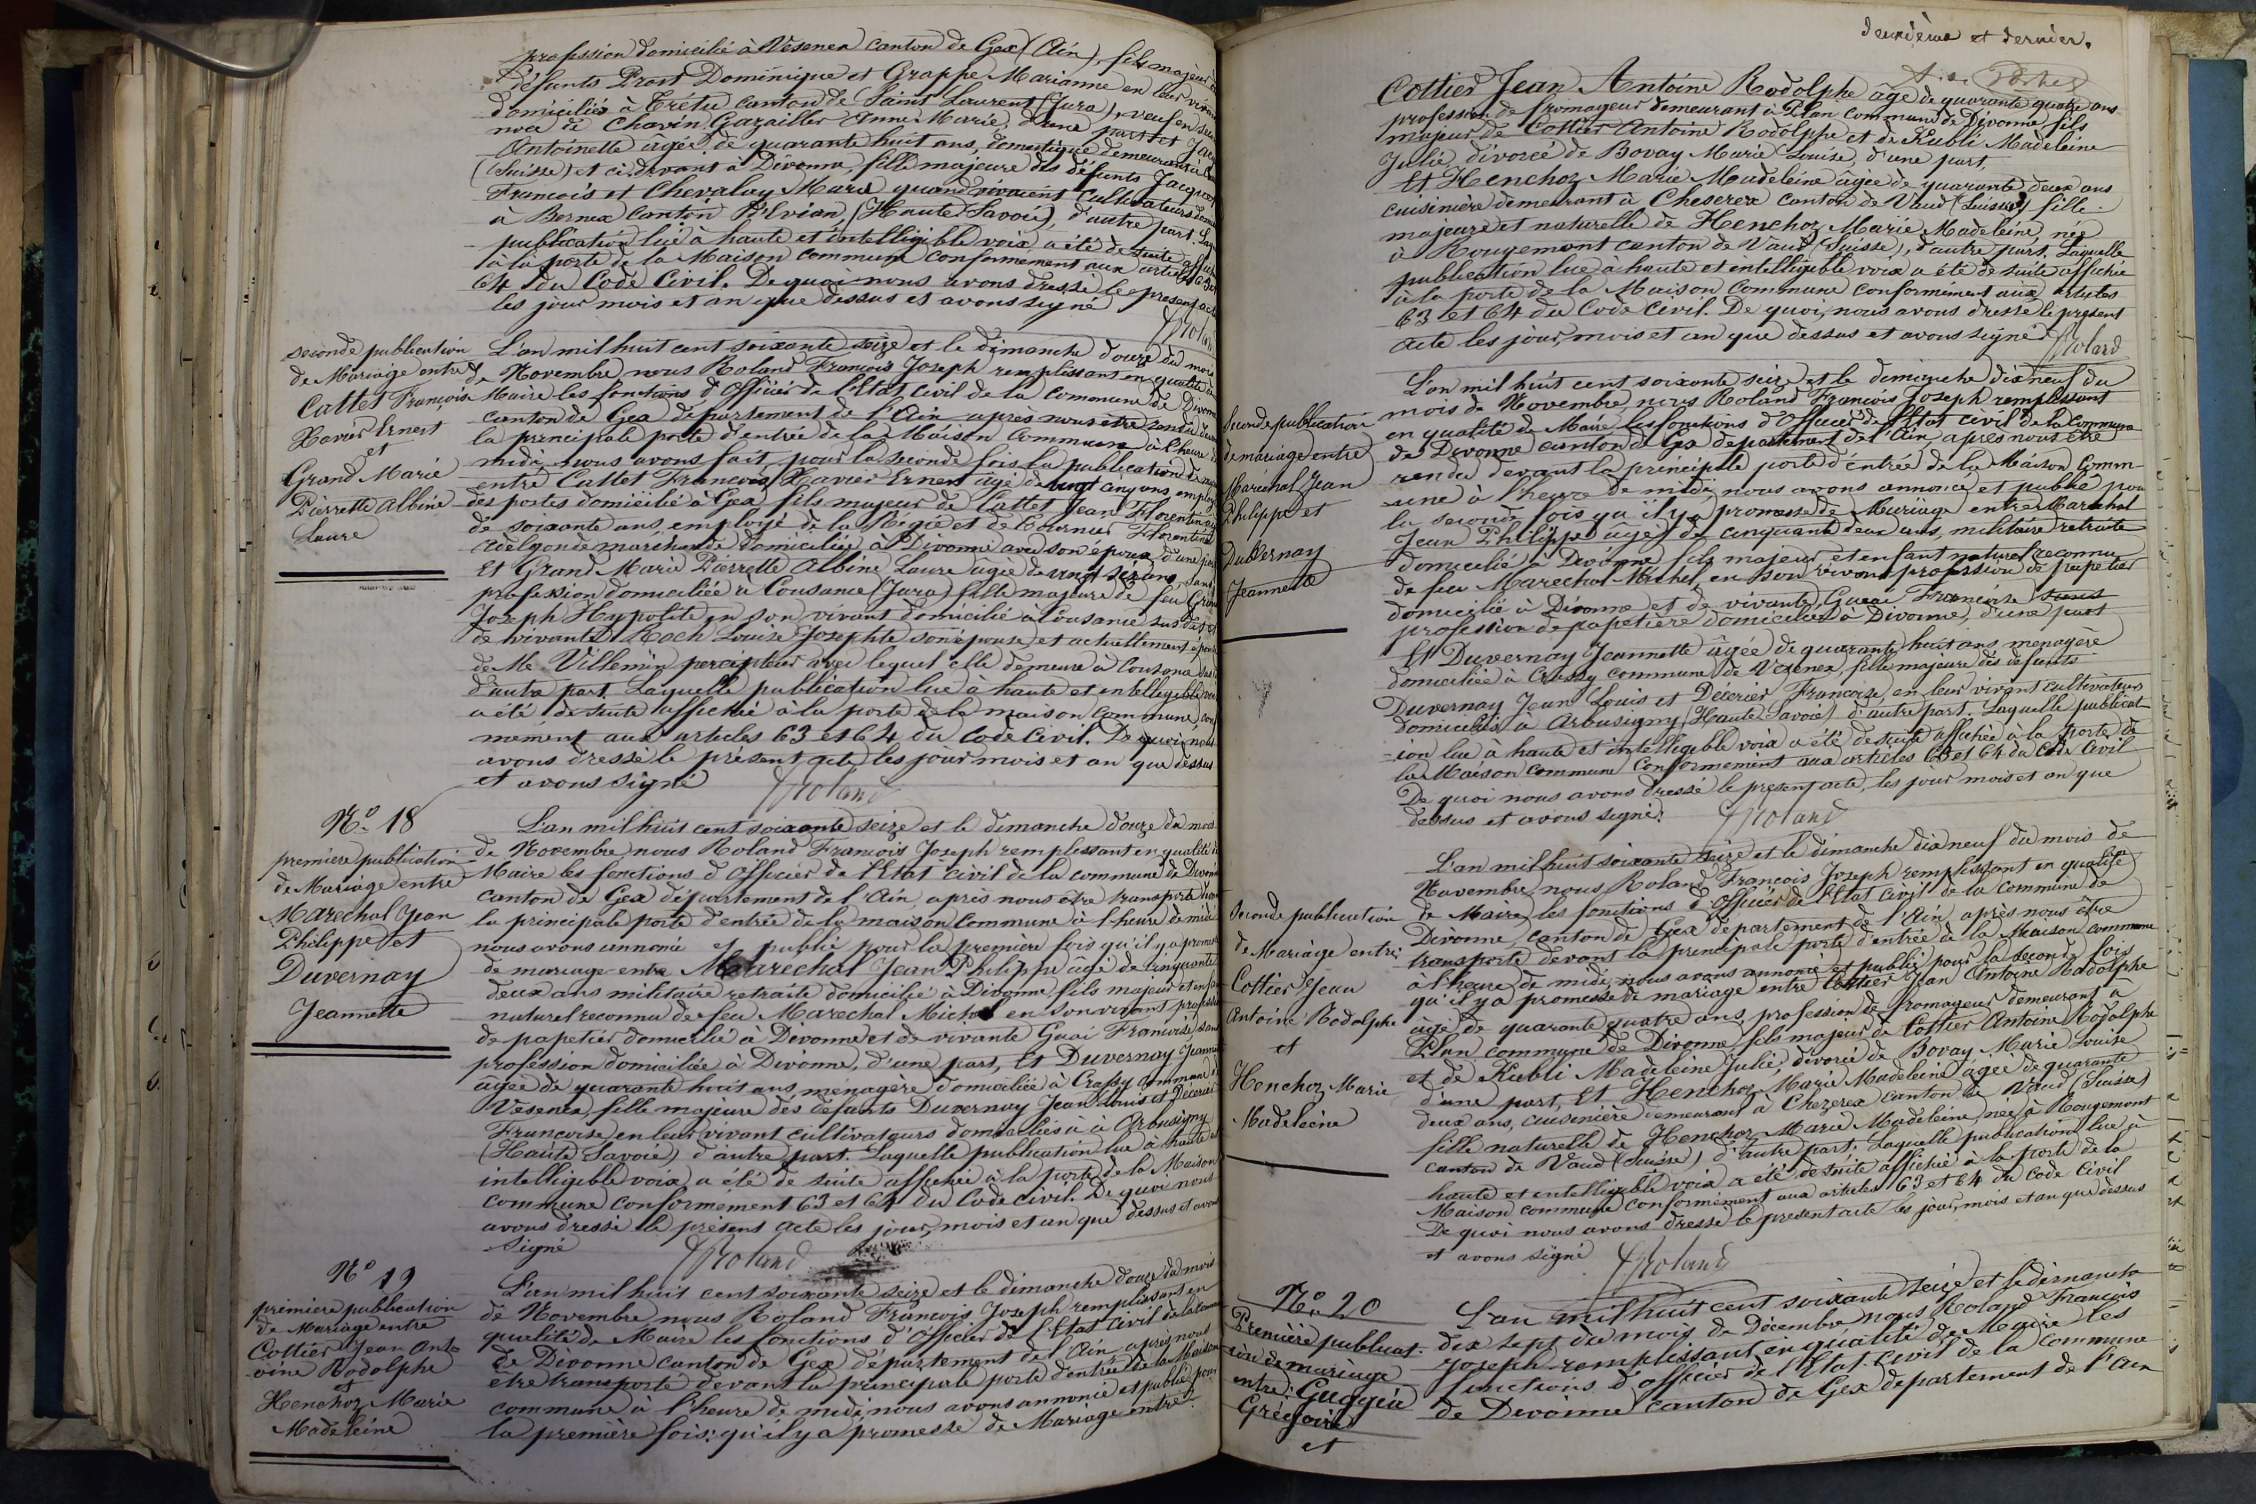 profession domicilié à Vésenex canton de Gex (Ain), fils majeur
défunts Prost Dominique et Grappe Marianne en leur vivant
domiciliés à Trétu canton de Saint Laurent (Jura), veuf en
noce de Chavin Gazailler Anne Marie, d'une part et
Antoinette âgée de quarante huit ans, domestique demeurant à
(Suisse) et ci-devant à Divonne, fille majeure des défunts Jacquier
François et Chevalay Marie quand vivaient cultivateurs
à Bernex canton d'Evian (Haute Savoie), d'autre part. Laq
publication lue à haute et intelligible voix a été de suite affich
à la porte de la Maison commune conformement aux articles 63 et
64 du Code Civil. De quoi nous avons dressé le present acte
les jour mois et an que dessus et avons signé
Roland
seconde publication
de Mariage entre
Cattet François
Xavier Ernest
et
Grand Marie
Pierrette Albine
Laure
L'an mil huit cent soixante seize et le dimanche douze du mois
de Novembre nous Roland François Joseph remplissant en qualité de
Maire les fonctions d'Officier de l'Etat civil de la commune de Divonne
canton de Gex département de l'Ain après nous être rendu devant
la principale porte d'entrée de la Maison commune à l'heure de
midi, nous avons fait pour la seconde fois la publication de
entre Cattet François Xavier Ernest âgé de vingt cinq ans, employ
des postes domicilié à Gex, fils majeur de Cattet Jean Florentin
de soixante ans, employé de la Régie et de Cournier Florentine
Adelgonde marchande domiciliée à Divonne avec son époux, d'une part
Et Grand Marie Pierrette Albine Laure âgée de vingt six ans, sans
profession domiciliée à Cousance (Jura) fille majeure de feu Grand
Joseph Hyppolite en son vivant domicilié à Cousance sus dit et
de vivante Roch Louise Josephte son épouse et actuellement épouse
de Mr Villemin percepteur avec lequel elle demeure à Cousance
d'autre part. Laquelle publication lue à haute et intelligible voix
a été de suite affichée à la porte de la maison commune, confor
mement aux articles 63 et 64 du Code Civil. De quoi nous
avons dressé le présent acte les jour mois et an que dessus
et avons signé
Roland
N° 18
premiere publication
de Mariage entre
Marechal Jean
Philippe et
Duvernay
Jeannette
L'an mil huit cent soixante seize et le dimanche douze du mois
de Novembre nous Roland François Joseph remplissant en qualité de
Maire les fonctions d'Officier de l'Etat civil de la commune de Divonne
canton de Gex département de l'Ain, après nous être transporté devant
la principale porte d'entrée de la maison commune à l'heure de midi
nous avons annoncé et publié pour la première fois qu'il y a promesse
de mariage entre Marechal Jean Philippe âgé de cinquante
deux ans militaire retraité domicilié à Divonne, fils majeur et enfant
naturel reconnu de feu Marechal Michel en son vivant profession
de papetier domicilié à Divonne et de vivante Guai Françoise sans
profession domiciliée à Divonne, d'une part, Et Duvernay Jeannette
âgée de quarante huit ans, ménagère domiciliée à Crassy commune de
Vesenex, fille majeure des défunts Duvernay Jean Louis et Décérier
Françoise, en leur vivant cultivateurs domiciliés à Arbusigny
(Haute Savoie) d'autre part. Laquelle publication lue à haute et
intelligible voix a été de suite affichée à la porte de la Maison
commune conformément 63 et 64 du Code civil. De quoi nous
avons dressé le présent acte les jour, mois et an que dessus et avons
signé
Roland
N° 19
première publication
de Mariage entre
Cottier Jean Ant-
oine Rodolphe
et
Henchoz Marie
Madeleine
L'an mil huit cent soixante seize et le dimanche douze du mois
de Novembre nous Roland François Joseph remplissant en
qualité de Maire les fonctions d'Officier de l'Etat Civil de la Commune
de Divonne canton de Gex département de l'Ain, après nous
être transporté devant la principale porte d'entrée de la Maison
commune à l'heure de midi, nous avons annoncé et publié pour
la première fois: qu'il y a promesse de Mariage entre:
deuxième et dernier.
Cottier Jean Antoine Rodolphe âgé de quarante quatre ans
profession de fromageur demeurant à Plan commune de Divonne fils
majeur de Cottier Antoine Rodolphe et de Kubli Madeleine
Julie, divorcé de Bovay Marie Louise, d'une part,
Et Henchoz Marie Madeleine âgée de quarante deux ans
cuisinière demeurant à Cheserex canton de Vaud (Suisse) fille
majeure et naturelle de Henchoz Marie Madeleine née
à Rougemont canton de Vaud (Suisse), d'autre part. Laquelle
publication lue à haute et intelligible voix a été de suite affichée
à la porte de la Maison Commune conformément aux articles
63 et 64 du Code Civil. De quoi, nous avons dressé le present
acte les jour, mois et an que dessus et avons signé
Roland
Seconde publication
de mariage entre
Maréchal Jean
Philippe et
Duvernay
Jeannette
L'an mil huit cent soixante seize et le dimanche dix neuf du
mois de Novembre, nous Roland François Joseph remplissant
en qualité de Maire les fonctions d'Officier de l'Etat civil de la commune
de Divonne canton de Gex département de l'Ain, après nous être
rendu devant la principale porte d'entrée de la Maison Comm-
une à l'heure de midi, nous avons annoncé et publié pour
la seconde fois qu'il y a promesse de Mariage entre Maréchal
Jean Philippe âgé de cinquante deux ans, militaire retraité
domicilié à Divonne, fils majeur et enfant naturel reconnu
de feu Marechal Michel, en son vivant profession de papetier
domicilié à Divonne et de vivante Guai Françoise sans
profession de papetière domiciliée à Divonne, d'une part
Et Duvernay Jeannette âgée de quarante huit ans, menagère
domiciliée à Crassy commune de Vesenex, fille majeure des défunts
Duvernay Jean Louis et Décérier Françoise, en leur vivant cultivateurs
domiciliés à Arbusigny (Haute Savoie) d'autre part. Laquelle publicat-
ion lue à haute et intelligible voix a été de suite affichée à la porte de
la Maison commune conformement aux articles 63 et 64 du Code Civil
De quoi nous avons dressé le present acte, les jour mois et an que
dessus et avons signé.
Roland
Seconde publication
de Mariage entre
Cottier Jean
Antoine Rodolphe
et
Henchoz Marie
Madeleine
L'an mil huit soixante seize et le dimanche dix neuf du mois de
Novembre, nous Roland François Joseph remplissant en qualité
de Maire, les fonctions d'Officier de l'Etat civil de la Commune de
Divonne, canton de Gex département de l'Ain, après nous être
transporté devant la principale porte d'entrée de la Maison commune
à l'heure de midi, nous avons annoncé et publié pour la seconde fois
qu'il y a promesse de mariage entre Cottier Jean Antoine Rodolphe
âgé de quarante quatre ans, profession de fromageur demeurant à
Plan commune de Divonne fils majeur de Cottier Antoine Rodolphe
et de Kubli Madeleine Julie, divorcé de Bovay Marie Louise
d'une part, Et Henchoz Marie Madeleine âgée de quarante
deux ans, cuisinière demeurant à Chezerex canton de Vaud (Suisse)
fille naturelle de Henchoz Marie Madeleine, née à Rougemont
canton de Vaud (Suisse) d'autre part. Laquelle publication lue à
haute et intelligible voix a été de suite affichée à la porte de la
Maison commune conformément aux articles 63 et 64 du Code Civil
De quoi nous avons dressé le présent acte les jour, mois et an que dessus
et avons signé
Roland
N° 20
Première publicat-
ion de mariage
entre: Guggia
Grégoire
et
L'an mil huit cent soixante seize et le dimanche
dix sept du mois de Décembre nous Roland François
Joseph remplissant en qualité de Maire les
fonctions d'officier de l'Etat-civil de la commune
de Divonne canton de Gex département de l'Ain